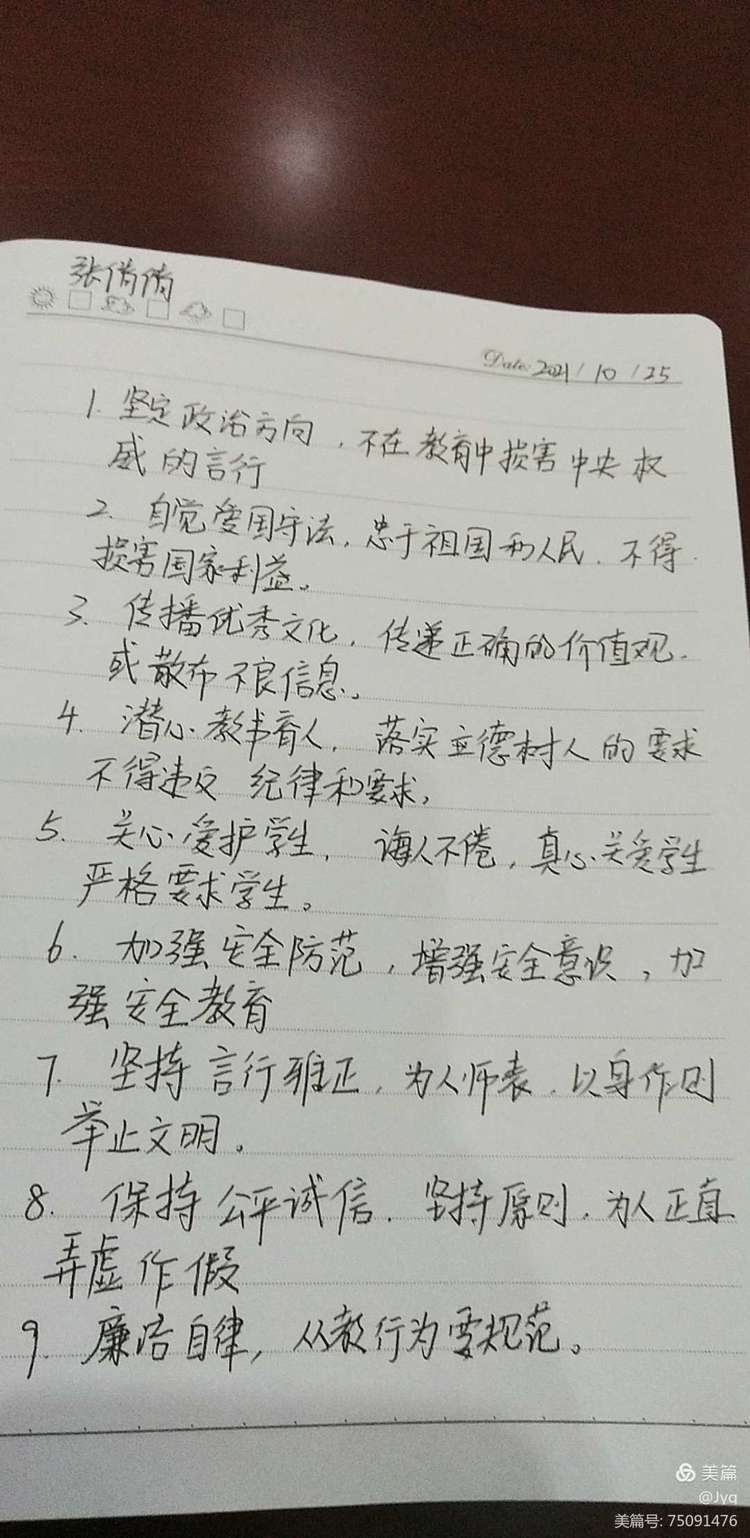 张倩倩
Date: 2021 / 10 / 25
1. 坚定政治方向，不在教育中损害中央权
威的言行
2. 自觉爱国守法，忠于祖国和人民．不得
损害国家利益。
3. 传播优秀文化，传递正确的价值观．
或散布不良信息。
4. 潜心教书育人，落实立德树人的要求
不得违反纪律和要求，
5. 关心爱护学生，诲人不倦，真心关爱学生
严格要求学生。
6. 加强安全防范，增强安全意识，加
强安全教育
7. 坚持言行雅正，为人师表．以身作则
举止文明。
8. 保持公平诚信．坚持原则．为人正直
弄虚作假
9. 廉洁自律，从教行为要规范。
美篇
@Jyq
美篇号: 75091476